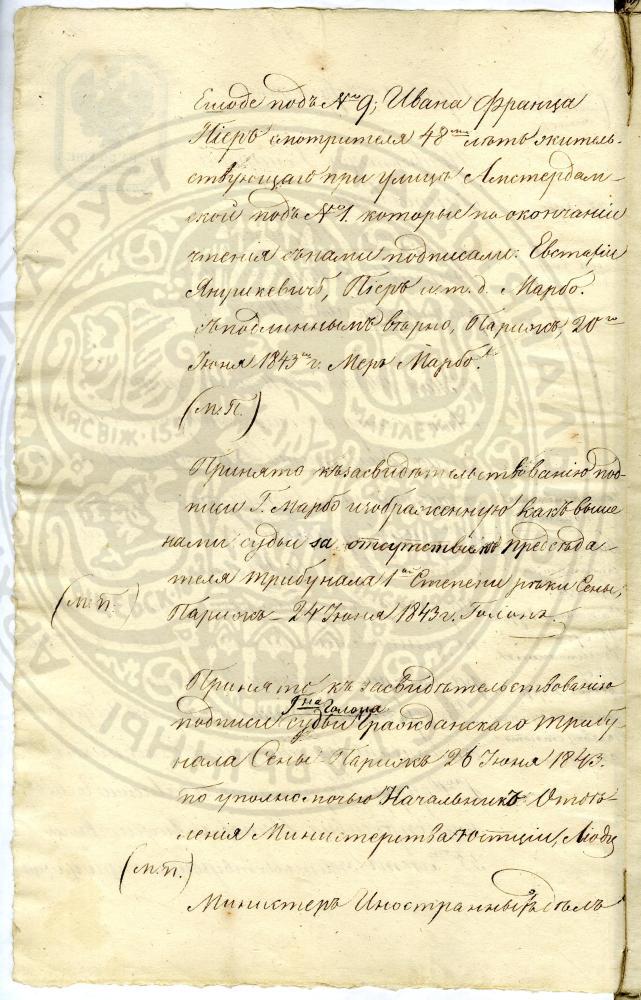 Еглоде подъ № 9; Ивана Франца
Піеръ смотрителя 48ми лѣтъ житель-
ствующаго при улицѣ Амстердам-
ской подъ № 1. которые по окончаніи
чтенія съ нами подписали: Евстафій
Янушкевичъ, Піеръ и.т.д. Марбо.
Съ подлиннымъ вѣрно, Парижъ, 20го
Іюня 1843го г. Меръ Марбо.
(М.П.)
Принято къ засвидѣтельствованію под-
писи Г. Марбо изображенную какъ выше
нами судьи за отсутствіемъ Предсѣда-
теля трибунала 1ой Степени рѣки Сены;
(М.П.)
Парижъ – 24 Іюня 1843 г. Голонъ.
Принято къ засвидѣтельствованію
Гна Голона
подписи судьи Гражданскаго Трибу-
нала Сены Парижъ 26 Іюня 1843.
по уполномочью Начальникъ Отдѣ-
ленія Министерства Юстиціи,
(М.П.)
Министеръ Иностранныхъ дѣлъ
НЯСВІЖ